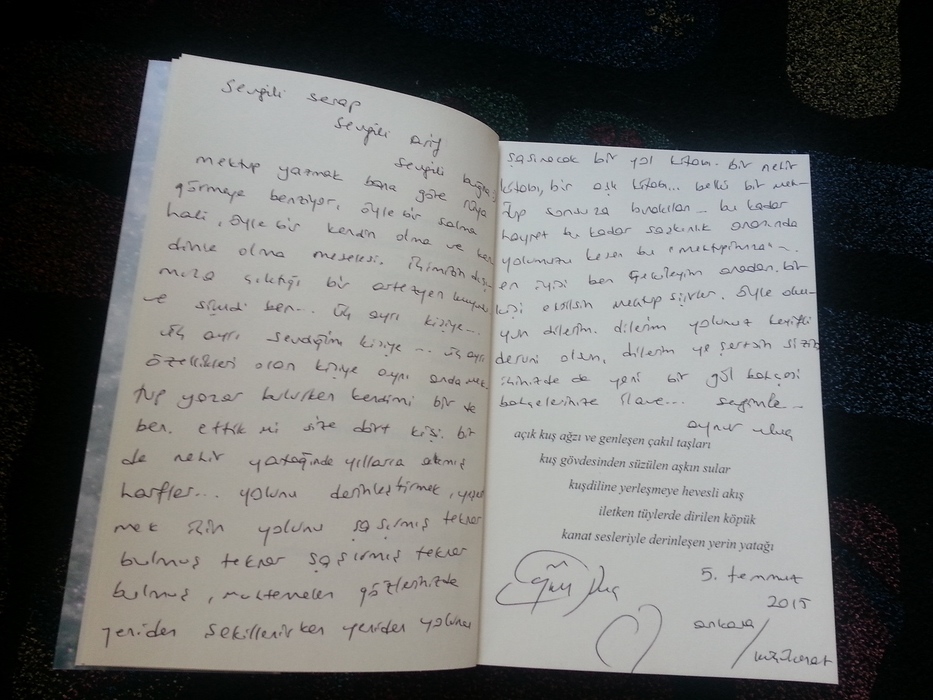 Sevgili Serap
Sevgili Arif
Sevgili buğra
mektup yazmak bana göre rüya
görmeye benziyor, öyle bir salma
hali, öyle bir kendin olma ve ken
dinle olma meselesi. içimizin dışı-
mıza çıktığı bir artezyen kuyusu
ve şimdi ben... üç ayrı kişiye...
üç ayrı sevdiğim kişiye... üç ayrı
özellikleri olan kişiye aynı anda mek
tup yazar bulurken kendimi bir ve
ben. ettik mi size dört kişi. bir
de nehir yatağında yıllarca akmış
harfler... yolunu derinleştirmek,
mek için yolunu şaşırmış tekrar
bulmuş tekrar şaşırmış tekrar
bulmuş, muhtemelen gözlerinizde
yeniden şekillenirken yeniden yolunu
şaşıracak bir yol kitabı. bir nehir
kitabı, bir aşk kitabı... belki bir mek-
tup sonsuza bırakılan... bu kadar
hayret bu kadar şaşkınlık arasında
yolumuzu kesen bu
en iyisi ben çekileyim aradan. bir
kişi eksilsin mektup şiirler. öyle
yun dilerim. dilerim yolunuz keyifli
deruni olsun, dilerim yeşertsin sizin
içinizde de yeni bir gül bahçesi
bahçelerinize ilave... sevgimle...
aynur uluç
açık kuş ağzı ve genleşen çakıl taşları
kuş gövdesinden süzülen aşkın sular
kuşdiline yerleşmeye hevesli akış
iletken tüylerde dirilen köpük
kanat sesleriyle derinleşen yerin yatağı
5. temmuz
2015
ankara/